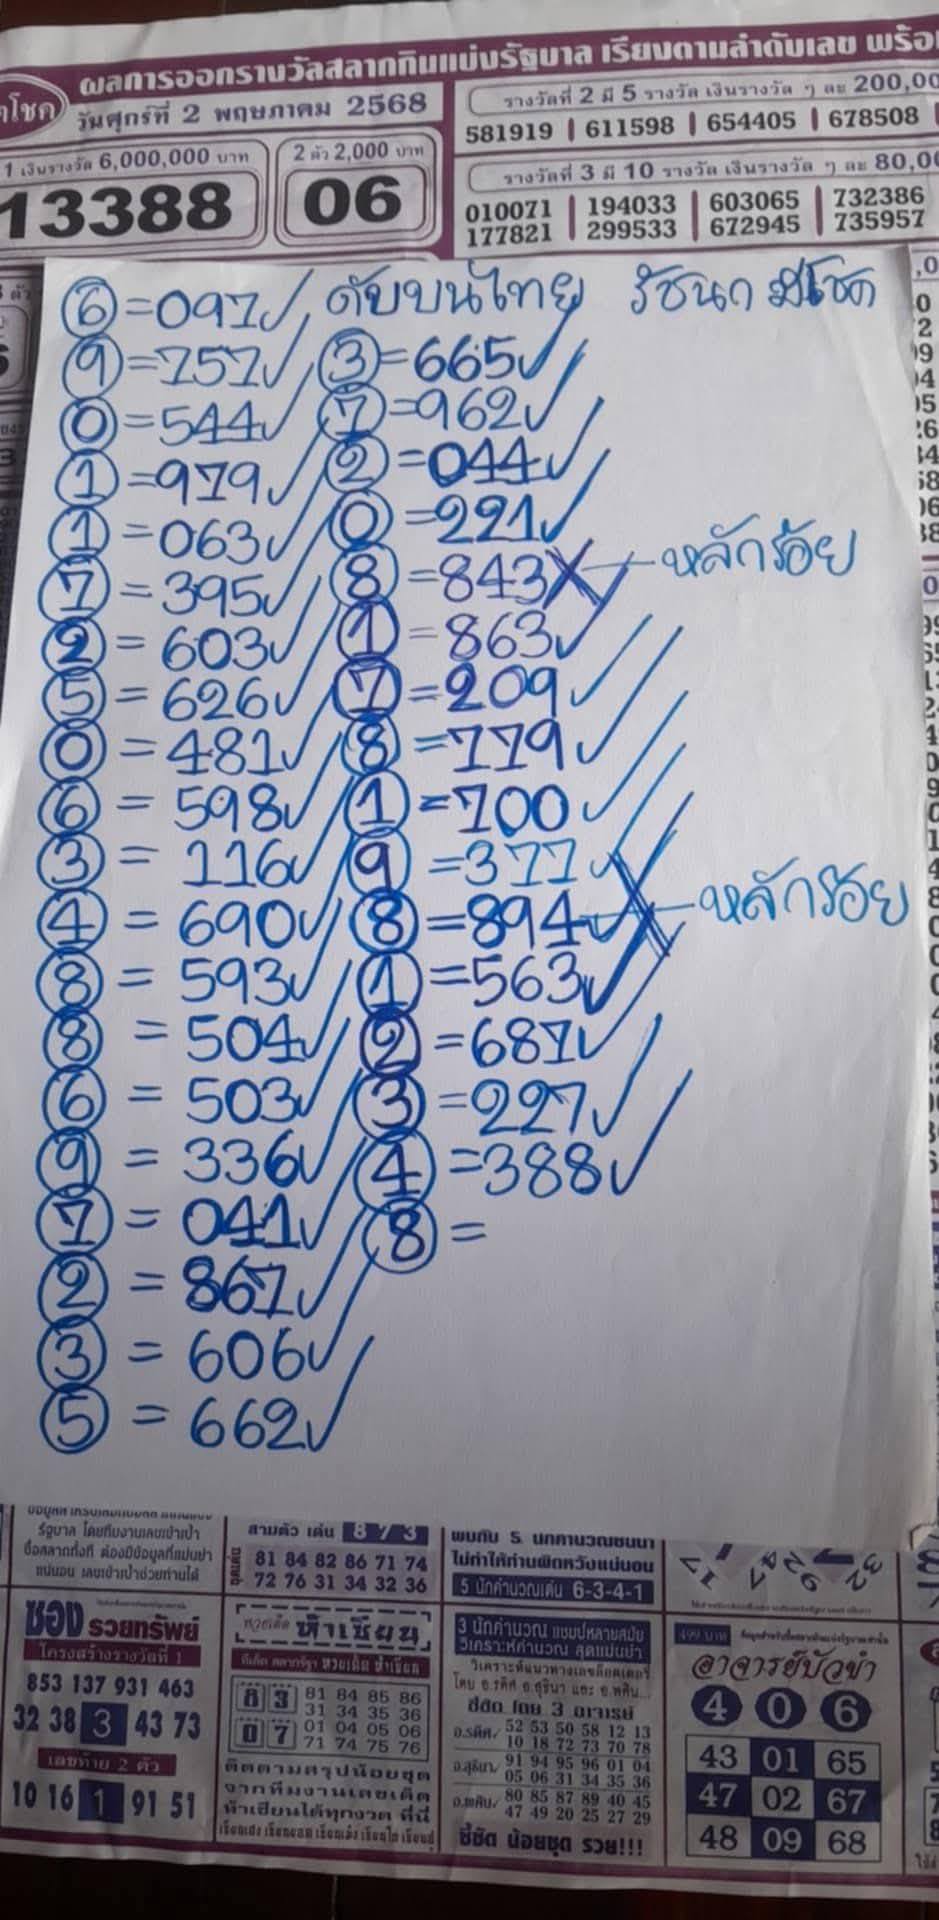 ผลการออกรางวัลสลากกินแบ่งรัฐบาล เรียงตามลำดับเลข พร้อ
วันศุกร์ที่ 2 พฤษภาคม 2568
1 เงินรางวัล 6,000,000 บาท
13388
2 ตัว 2,000 บาท
06
รางวัลที่ 2 มี 5 รางวัล เงินรางวัล ๆ ละ 200,00
581919 611598 654405 678508
รางวัลที่ 3 มี 10 รางวัล เงินรางวัล ๆ ละ 80,00
010071 194033 603065 732386
177821 299533 672945 735957
ดับบนไทย รัชนก มีโชค
6=097
9=757
0=544
1=979
1=063
7=395
2=603
5=626
0=481
6=598
3=116
4=690
8=593
8=504
6=503
9=336
7=041
2=867
3=606
5=662
3=665
7=962
2=044
0=221
8=843 หลักร้อย
1=863
7=209
8=779
1=700
9=377
8=894 หลักร้อย
1=563
2=687
3=227
4=388
8=
รัฐบาล โดยทีมงานเลขเข้าเป้า
ซื้อสลากทั้งที ต้องมีข้อมูลที่แม่นยำ
แน่นอน เลขเข้าเป้าช่วยท่านได้
สามตัว เด่น 873
81 84 82 86 71 74
72 76 31 34 32 36
พบกับ 5 นักคำนวณชั้นนำ
ไม่ทำให้ท่านผิดหวังแน่นอน
5 นักคำนวณเด่น 6-3-4-1
ซองรวยทรัพย์
โครงสร้างรางวัลที่ 1
853 137 931 463
32 38 3 43 73
เลขท้าย 2 ตัว
10 16 1 91 51
หวยเด็ด ห้าเซียน
8 3
0 7
81 84 85 86
31 34 35 36
01 04 05 06
71 74 75 76
ติดตามสรุปน้อยชุด
จากทีมงานเลขเด็ด
ห้าเซียนได้ทุกงวด ที่นี่
3 นักคำนวณ แชมป์หลายสมัย
วิเคราะห์คำนวณ สุดแม่นยำ
ชี้ชัด โดย 3 อาจารย์
52 53 50 58 12 13
10 18 72 73 70 78
91 94 95 96 01 04
05 06 31 34 35 36
80 85 87 89 40 45
47 49 20 25 27 29
ชี้ชัด น้อยชุด รวย!!!
499 บาท
อาจารย์บัวขำ
4 0 6
43 01 65
47 02 67
48 09 68